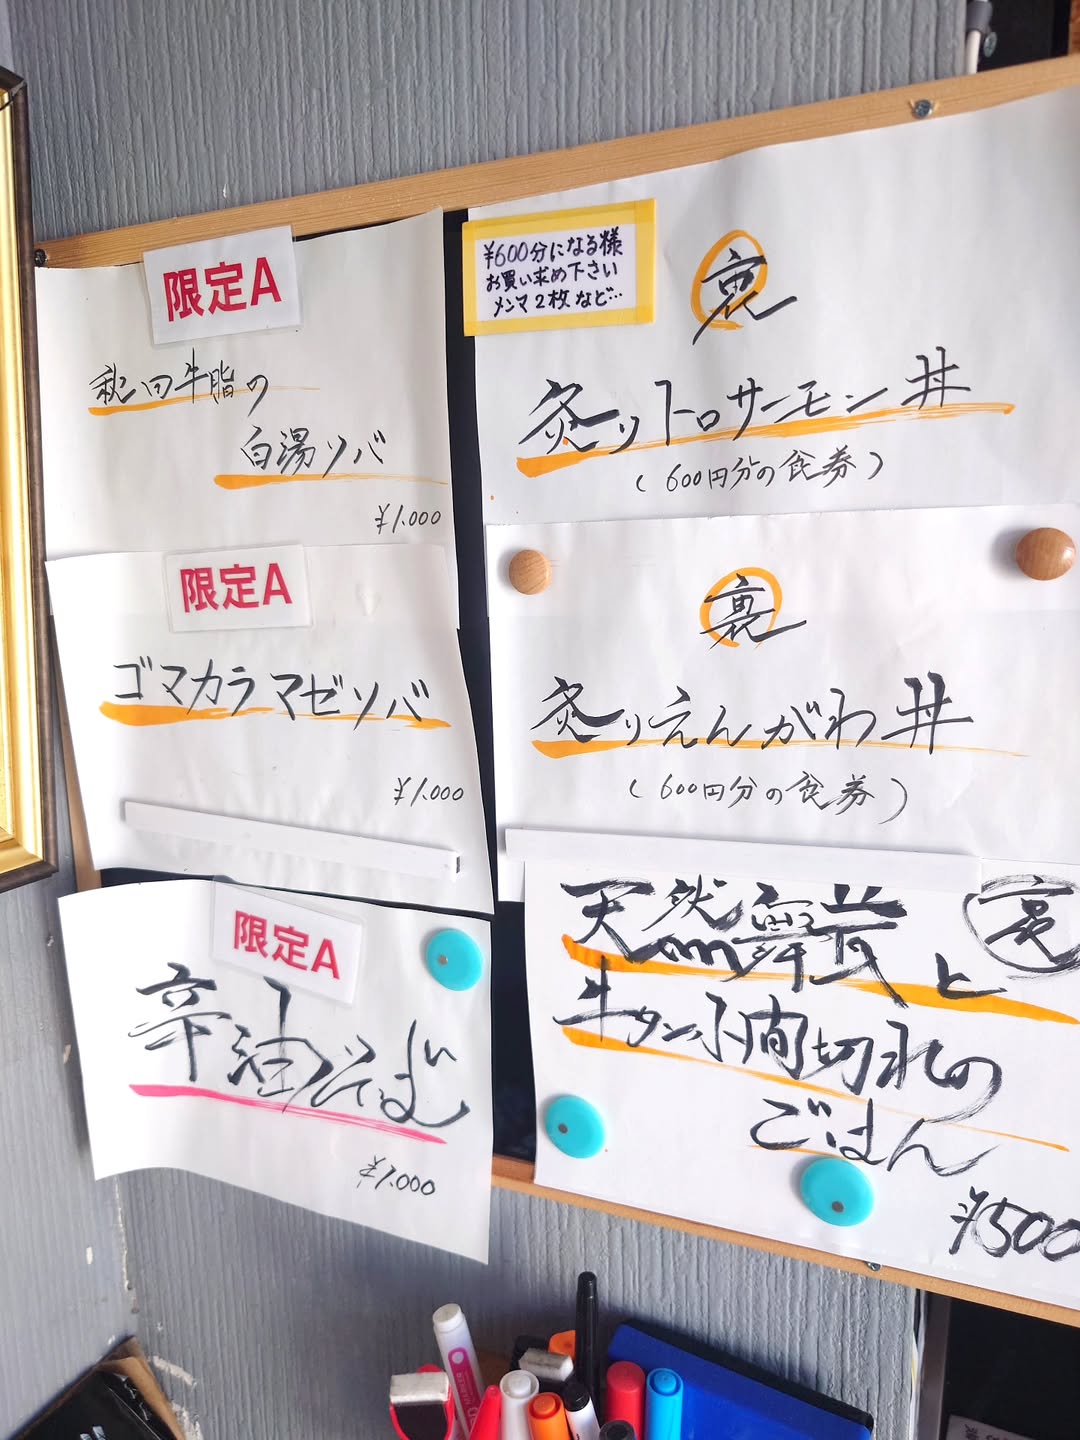 限定A
秋田牛脂の
白湯ソバ
¥1.000
限定A
ゴマカラマゼソバ
¥1.000
限定A
辛油そば
¥1.000
¥600分になる様
お買い求め下さい
メンマ2枚など…
裏
炙りトロサーモン丼
(600円分の食券)
裏
炙りえんがわ丼
(600円分の食券)
裏
天然舞茸と
牛タン小間切れの
ごはん
¥500